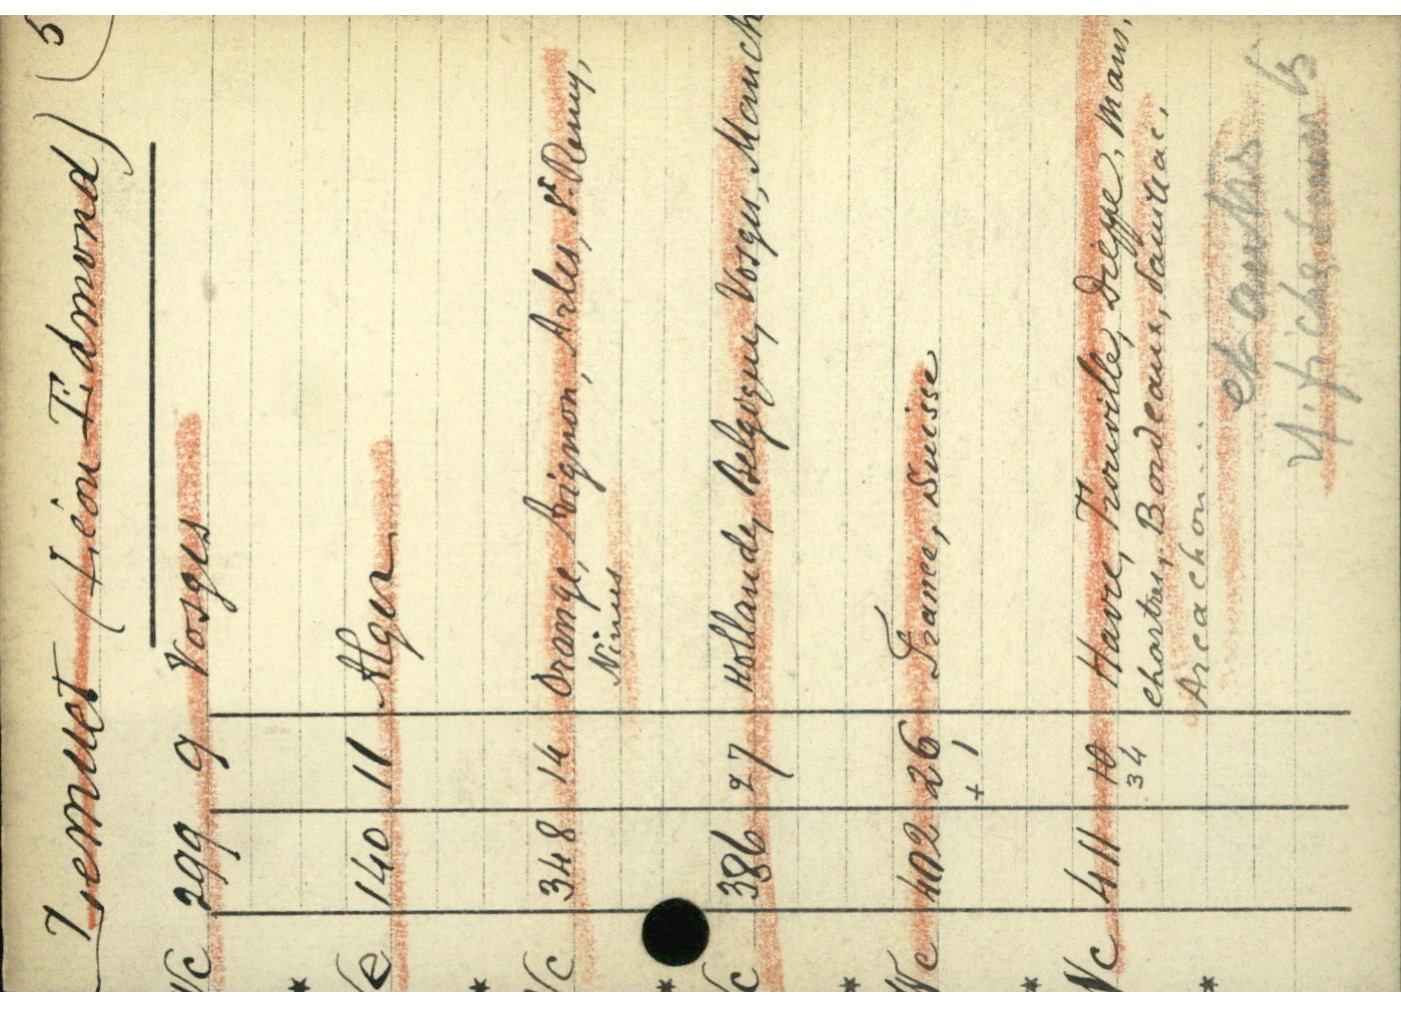 Lemuet (Léon Edmond) 5
Vc 299 9 Vosges
*
Ve 140 11 Alger
*
Vc 348 14 Orange, Avignon, Arles, St. Remy,
Nimes
*
Vc 386 27 Hollande, Belgique, Vosges, Manch
*
Vc 402 26 France, Suisse
+ 1
*
Vc 411 10 Havre, Trouville, Dieppe, Mans,
34
Chartres, Bordeaux,
Arcachon...
*
et autres